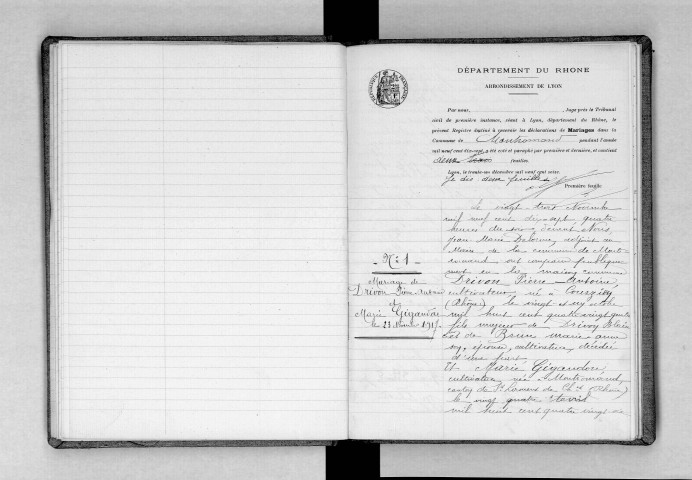 RÉPUBLIQUE FRANÇAISE
DÉPARTEMENT DU RHONE
ARRONDISSEMENT DE LYON
Par nous, Juge près le Tribunal
civil de première instance, séant à Lyon, département du Rhône, le
présent Registre destiné à recevoir les déclarations de Mariages dans la
Commune de Montromand pendant l'année
mil neuf cent dix-sept, a été coté et paraphé par première et dernière, et contient
deux feuilles.
Lyon, le trente-un décembre mil neuf cent seize.
Je dis deux feuilles
Première feuille
N° 1
Mariage de
Drivon Pierre Antoine
et
Marie Gigandon
le 23 Novembre 1917
Le vingt trois Novembre
mil neuf cent dix-sept quatre
heures du soir devant Nous,
Jean Marie Delorme, adjoint au
Maire de la commune de Mont-
romand ont comparu publique
ment en la maison commune
Drivon Pierre-Antoine,
cultivateur né à Courzieu
(Rhône) le vingt et un octobre
mil huit cent quatre vingt quatre
fils majeur de Drivon
et de marie anne
son épouse, cultivatrice, décédée
d'une part
Et Marie Gigandon,
cultivatrice, née à Montromand,
canton de St Laurent de Ch.t (Rhône)
le vingt quatre Avril
mil huit cent quatre vingt